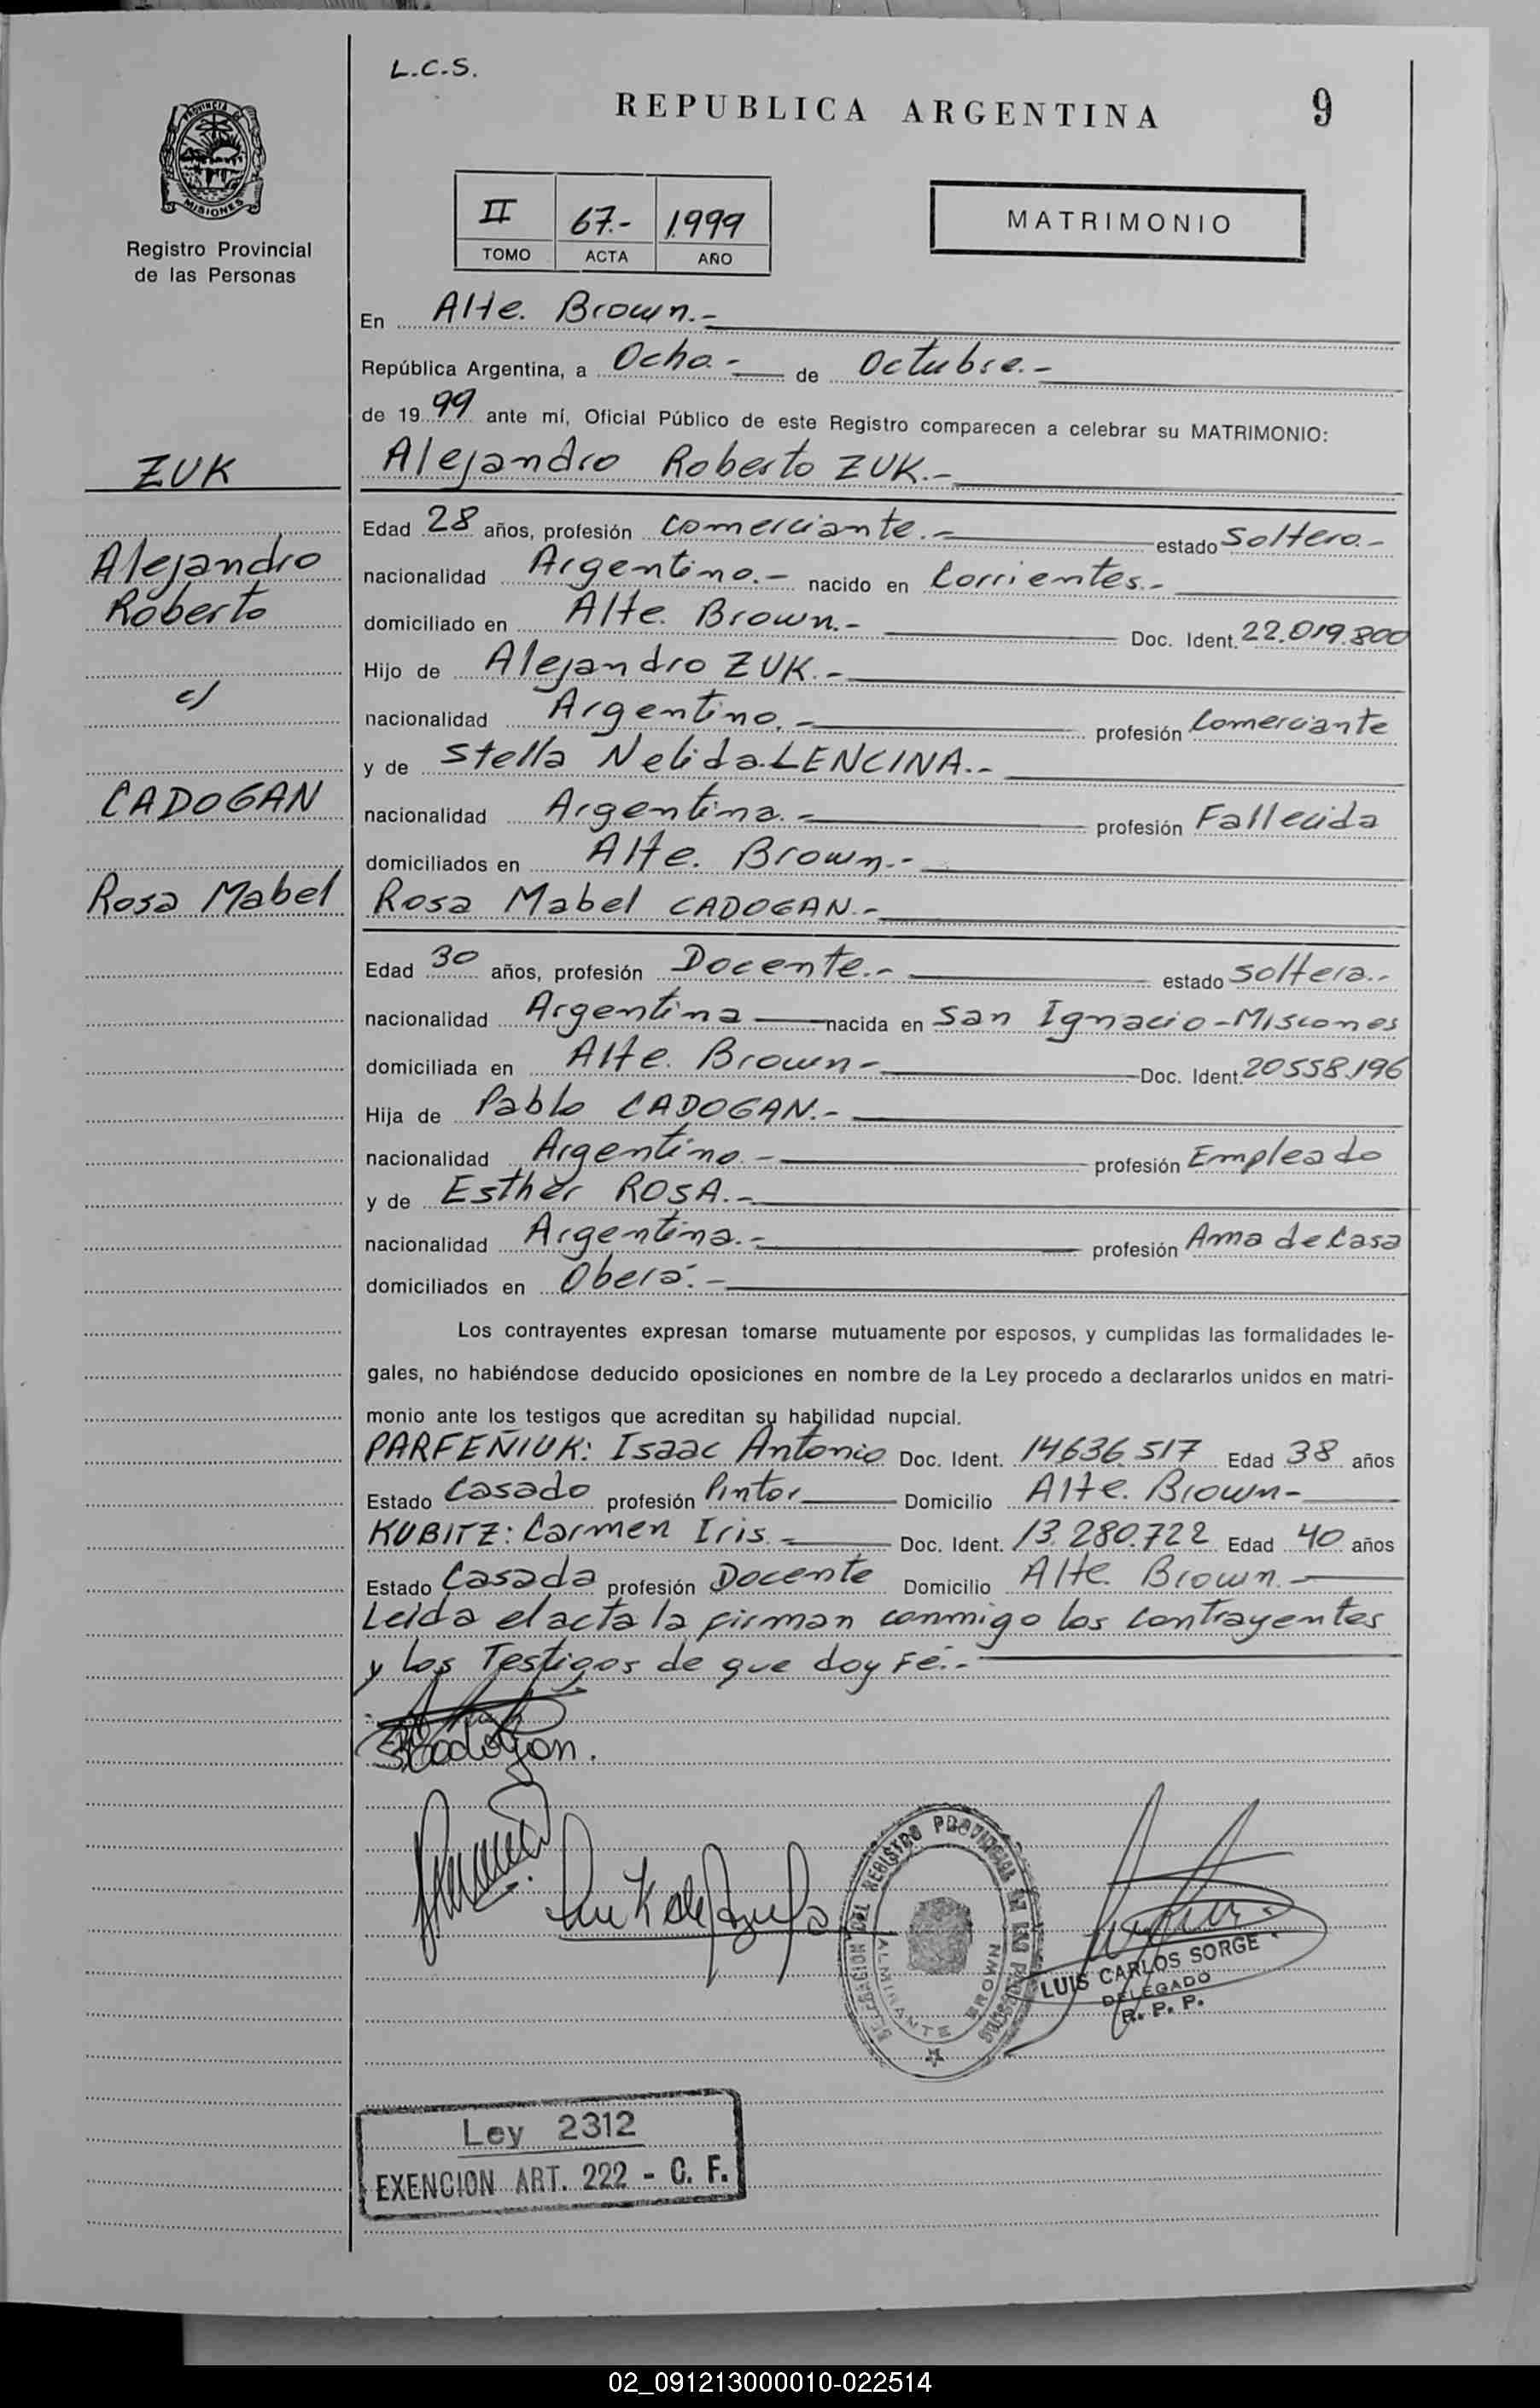 L.C.S.
REPUBLICA ARGENTINA 9
PROVINCIA DE
MISIONES
Registro Provincial
de las Personas
II 67.- 1.999
TOMO ACTA AÑO
MATRIMONIO
En Alte. Brown.-
República Argentina, a Ocho.- de Octubre.-
de 19 99 ante mí, Oficial Público de este Registro comparecen a celebrar su MATRIMONIO:
ZUK
Alejandro Roberto ZUK.-
Edad 28 años, profesión Comerciante.- estado Soltero.-
Alejandro
nacionalidad Argentino.- nacido en Corrientes.-
Roberto
domiciliado en Alte. Brown.- Doc. Ident. 22.019.800
Hijo de Alejandro ZUK.-
c/
nacionalidad Argentino.- profesión Comerciante
y de Stella Nelida LENCINA.-
CADOGAN
nacionalidad Argentina.- profesión Fallecida
domiciliados en Alte. Brown.-
Rosa Mabel
Rosa Mabel CADOGAN.-
Edad 30 años, profesión Docente.- estado soltera.-
nacionalidad Argentina nacida en San Ignacio-Misiones
domiciliada en Alte. Brown- Doc. Ident. 20558.196
Hija de Pablo CADOGAN.-
nacionalidad Argentino.- profesión Empleado
y de Esther ROSA.-
nacionalidad Argentina.- profesión Ama de Casa
domiciliados en Oberá.-
Los contrayentes expresan tomarse mutuamente por esposos, y cumplidas las formalidades le-
gales, no habiéndose deducido oposiciones en nombre de la Ley procedo a declararlos unidos en matri-
monio ante los testigos que acreditan su habilidad nupcial.
PARFEÑIUK: Isaac Antonio Doc. Ident. 14636.517 Edad 38 años
Estado Casado profesión Pintor Domicilio Alte. Brown-
KUBITZ: Carmen Iris.- Doc. Ident. 13.280.722 Edad 40 años
Estado Casada profesión Docente Domicilio Alte. Brown.-
Leida el acta la firman conmigo los contrayentes
y los Testigos de que doy Fé.-
Cadogan.
DELEGACION DEL REGISTRO PROVINCIAL DE LAS PERSONAS
ALMIRANTE BROWN
LUIS CARLOS SORGE
DELEGADO
R. P. P.
Ley 2312
EXENCION ART. 222 - C. F.
02_091213000010-022514